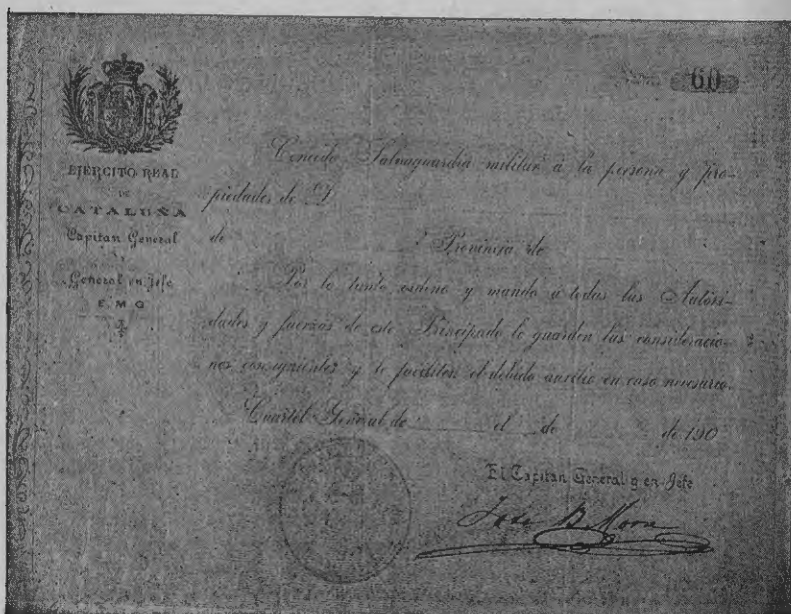 60
EJÉRCITO REAL
DE
CATALUÑA
Capitan General
Y
General en Jefe
E. M. G
Concedo Salvaguardia militar á la persona y pro-
piedades de D
de Provincia de
Por lo tanto ordeno y mando a todas las Autori-
dades y fuerzas de este Principado le guarden las consideracio-
nes consiguientes y le faciliten el debido auxilio en caso necesario.
Cuartel General de el de de 190
El Capitan General y en Jefe
José B. Moore